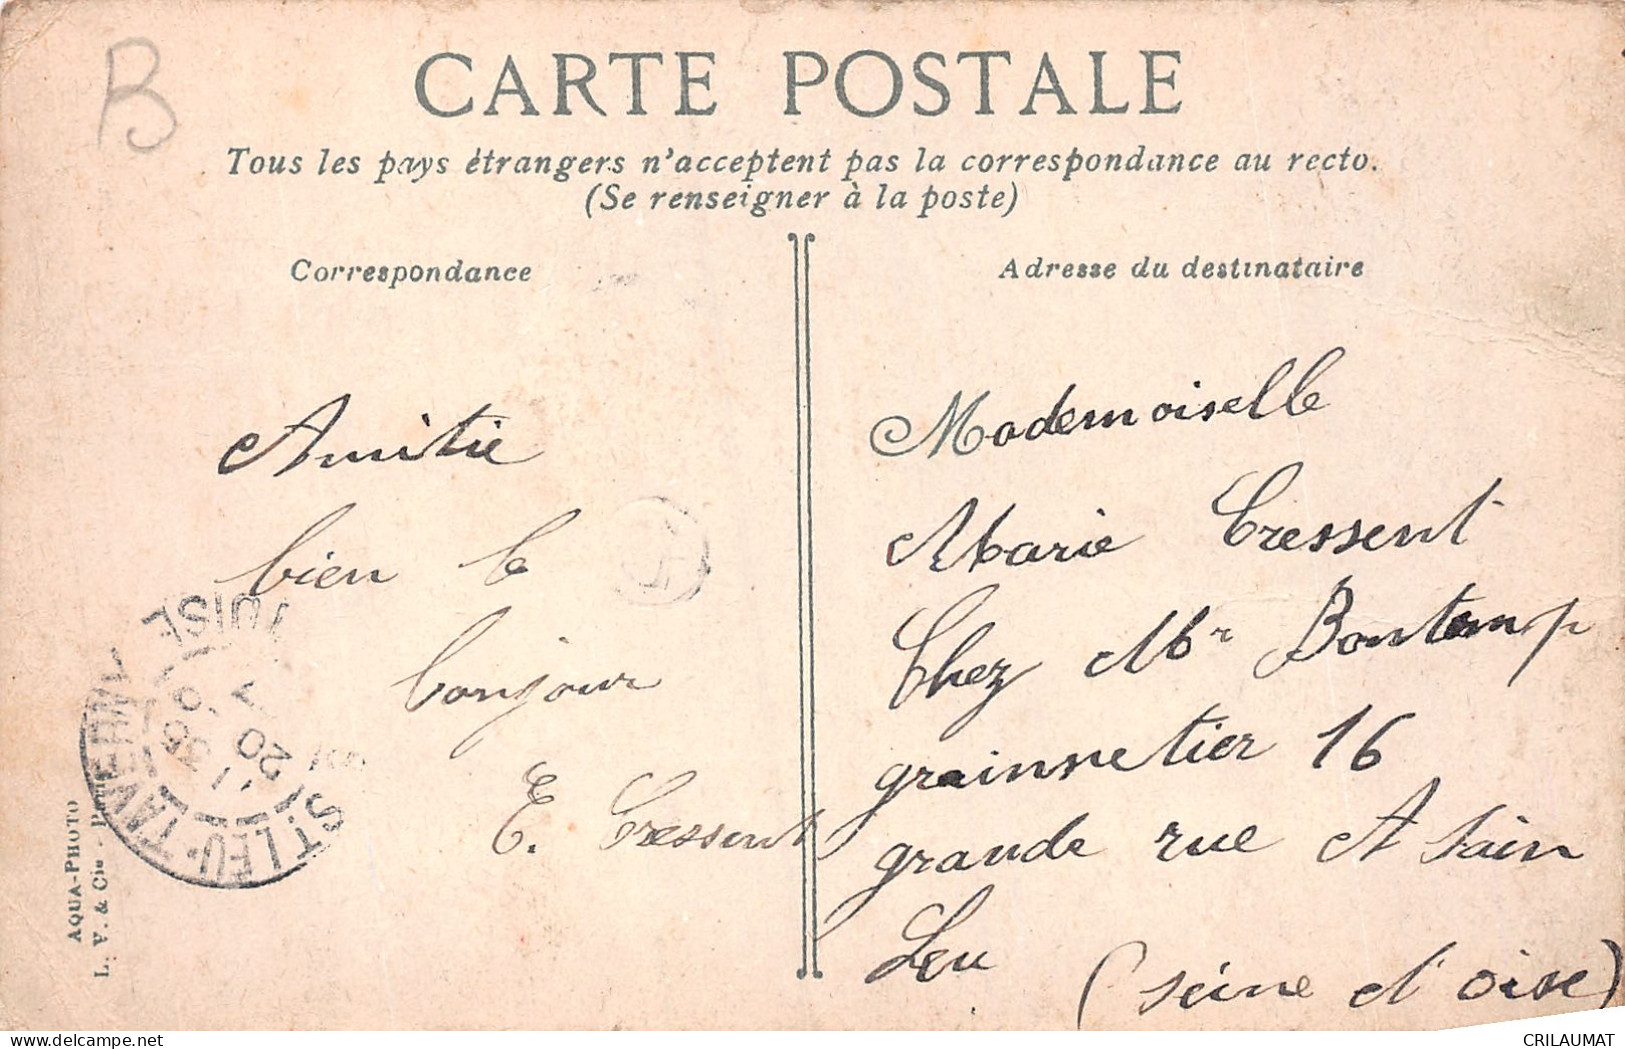 B
CARTE POSTALE
Tous les pays étrangers n'acceptent pas la correspondance au recto.
(Se renseigner à la poste)
Correspondance
Amitie
bien le
bonjour
E. Cressent
Adresse du destinataire
Mademoiselle
Marie Cressent
Chez Mr Bontemp
grainnetier 16
grande rue A Sain
Leu
(seine et oise)
ST LEU-TAVERNY
OISE
20
AQUA-PHOTO
L. V. & Cie - Paris
CRILAUMAT